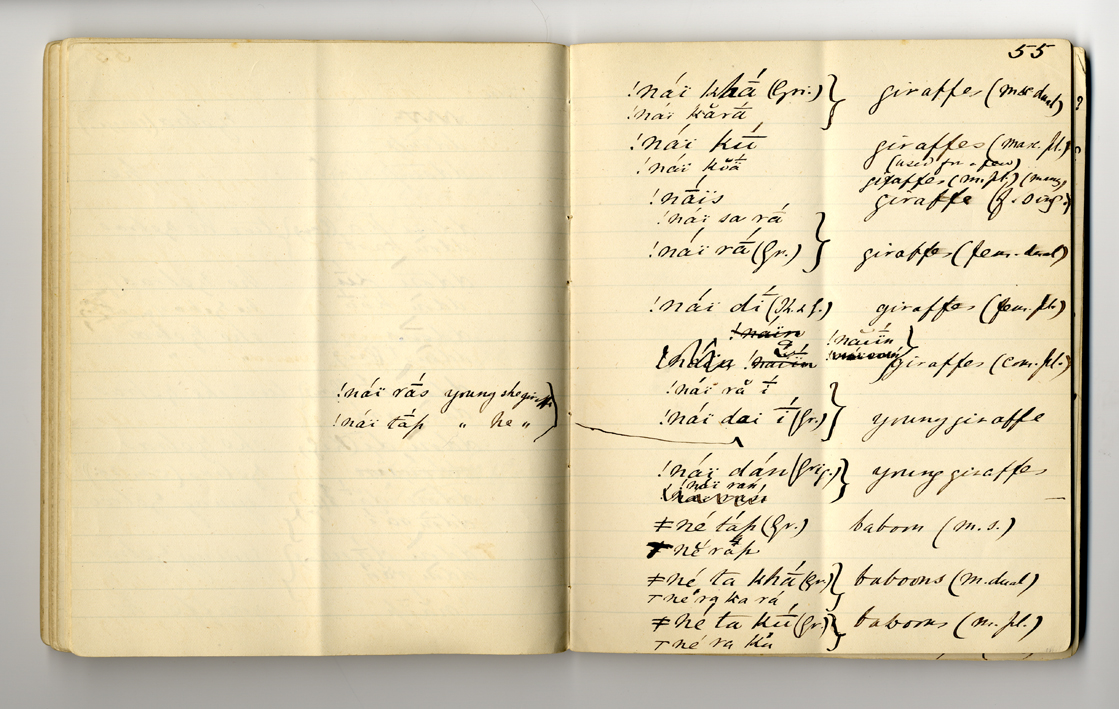 55
!nái khā́ (Gri.) } giraffes (mas. dual) ?
!nái kărā́
!nái kū́ giraffes (mas. pl.)
!nái kŭā́ (used for a few)
giraffes (m. pl.) (many)
!nāis giraffe (f. sing.)
!nái sa rā́
!nái rā́ (Gr.) } giraffes (fem. dual)
!nái dī́ giraffes (fem. pl.)
!nain
!naiin
giraffes (com. pl.)
!nái rā́s young she giraffe
!nái rā ī́
!nái tā́p " he "
!nái dai ī́ (Gr.) } young giraffe
!nái dán (Grig.) } young giraffes
!nai ran
≠né tā́p (Gr.) baboon (m. s.)
né rā́p
≠né ta khā́ (Gr.) } baboons (m. dual)
né ra ka rá
≠né ta kū́ (Gr.) } baboons (m. pl.)
né ra kŭ